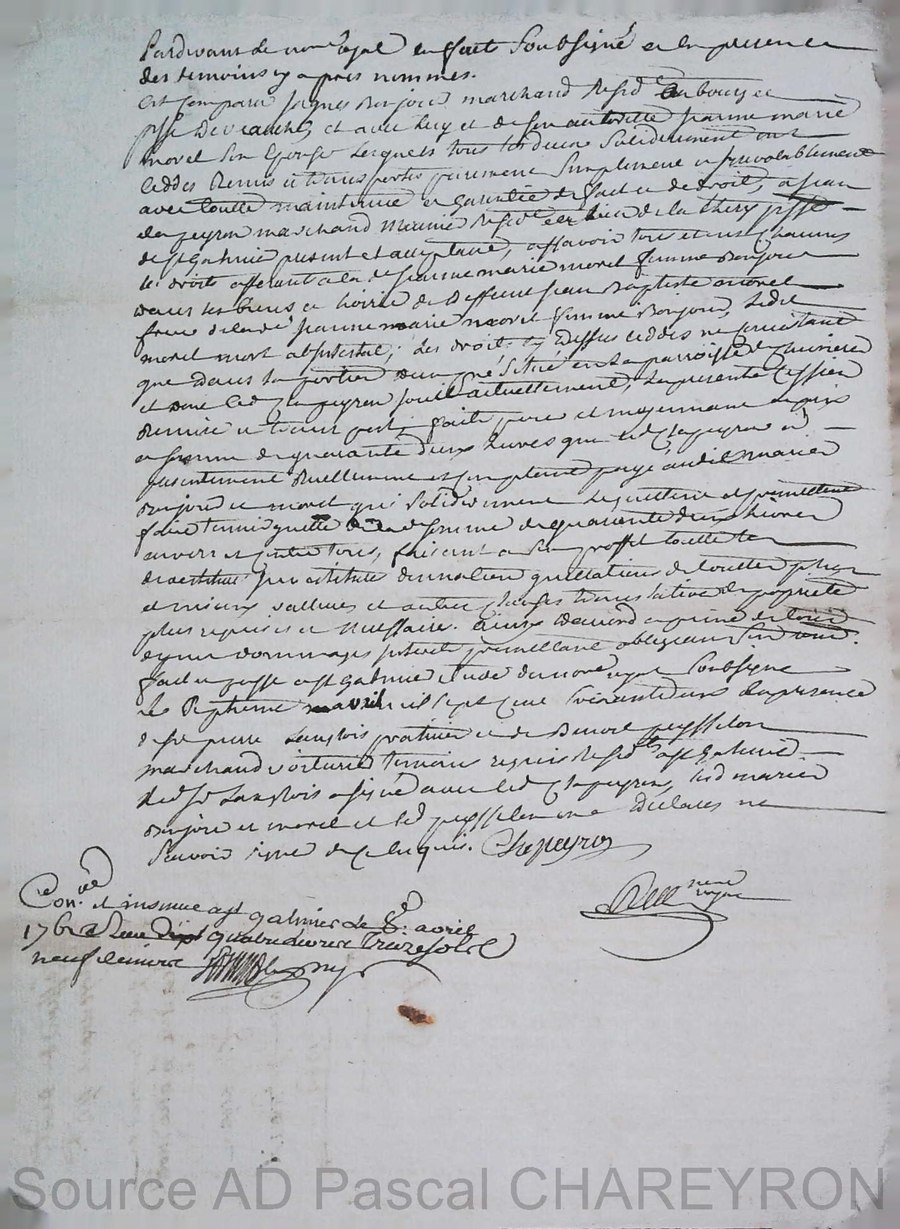 Pardevant le no.re royal en fait soubsigné et en presence
des temoins cy apres nommes.
est comparu Bonjour marchand resid. au bourg et
psse de et avec luy et de son autoritté Jeanne marie
morel son Epouse lesquels tous les deux solidairement ont
ceddés Remis et transportés purement simplement et irrevocablement
avec toutte maintenue et garantie de fait et de droit, a Jean
chapeyron marchand resid. au lieu de la psse
de st Galmier present et acceptant, assavoir tous et uns chacuns
les droits afferant a la de Jeanne marie morel femme Bonjour
dans les biens et hoirie de deffunt Jean Baptiste morel
frere de la de Jeanne marie morel femme Bonjour, ledit
morel mort abintestat, les droits cy dessus ceddés ne consistant
que dans la portion d'un pré situé en la parroisse de
et dont led Chapeyron jouit actuellement, la presente cession
remise et transport, faite pour et moyennant le prix
et somme de quarante deux livres que led Chapeyron a
presentement reellement et comptant payé auxdits mariés
Bonjour et morel qui solidairement le quittent et promettent
faire tenir quitte de lad somme de quarante deux livres
envers et contre tous, faisant a son proffit touttes
de touttes plus
et mieux vallues et autres clauses translatives de propriété
plus requises et necessaire. ainsy convenu a peine de tous
depens dommages interets promettant obligeant
fait et passé a st Galmier etude du no.re royal soubsigné
le septieme avril mil sept cent soixante deux en presence
de sr pierre Langlois praticien et de Benoit peysselon
marchand voiturier temoins requis resid. a st Galmier
led sr Langlois a signé avec led Chapeyron, lesd mariés
Bonjour et morel et led peysselon ont declarés ne
scavoir signer de ce enquis. Chapeyron
no.re
royal
Con.lé et insinué a st galmier le 8e. avril
1762 quatre livres treize sols
neuf deniers
Source AD Pascal CHAREYRON